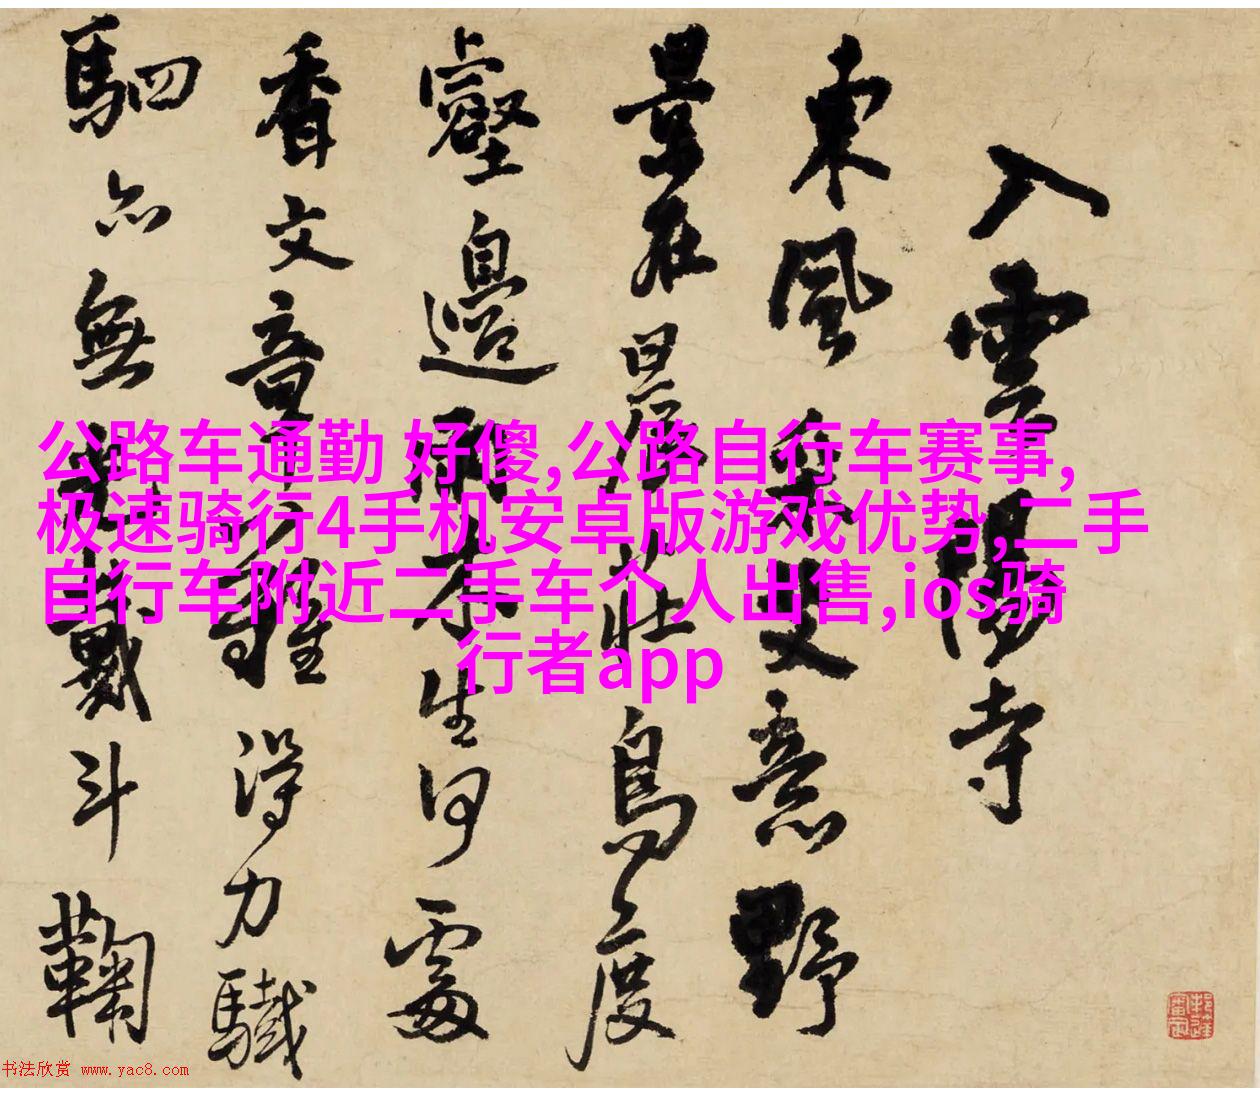 入雲陽寺
東風意野
景在晨莊鳥度
壑邊雨生何處
香文章難得力驖
駟亦無斗鞠
公路车通勤 好傻,公路自行车赛事,
极速骑行4手机安卓版游戏优势,二手
自行车附近二手车个人出售,ios骑
行者app
书法欣赏 www.yac8.com